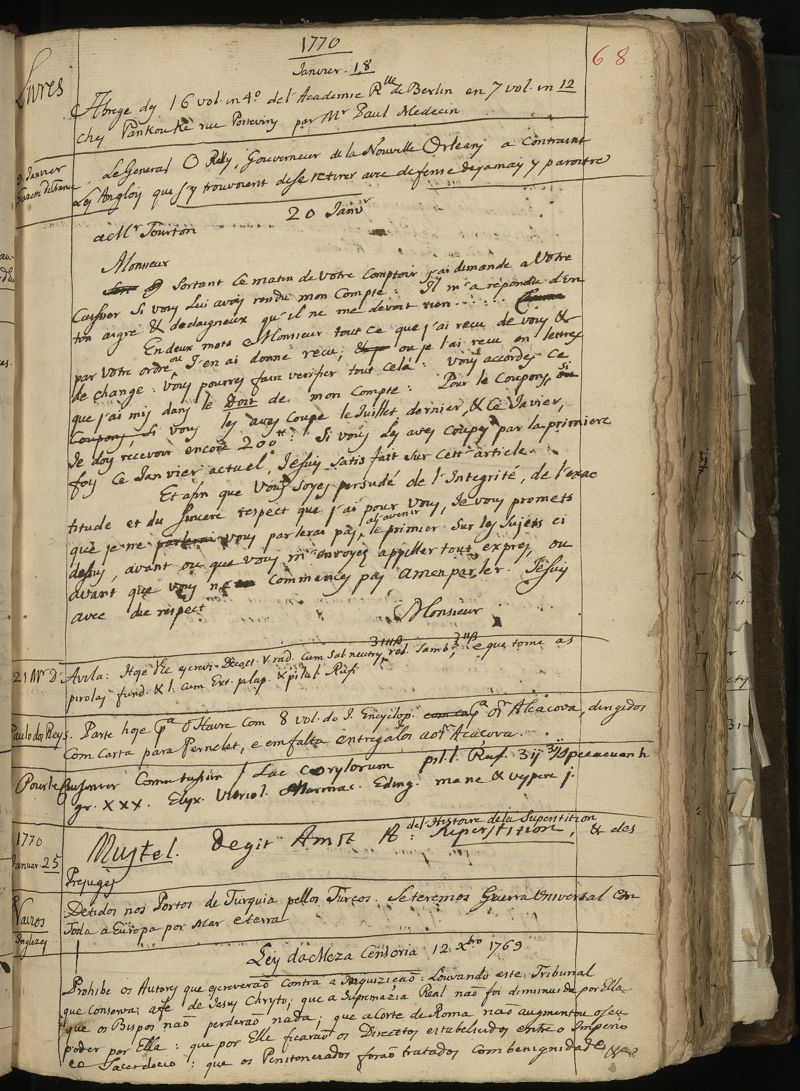 1770
68
Janvier. 18
Livres
Abrege des 16 vol. in 4º de l'Academie Rlle de Berlin en 7 vol. in 12
chez Pankouke rue Poitevins par Mr Paul Medecin
9. Janvier
Gazette de France
Le General O Relly, Gouverneur de la Nouvelle Orleans a contraint
Les Anglois que s'y trouvoient de se retirer avec defense de jamais y paroitre
20 Janvr
a Mr Tourton
Monsieur
Sortant ce matin de Votre Comptoir j'ai demandé a Votre
Caissier si vous lui avois rendu mon Compte: Il m'a répondu d'un
ton aigre & dedaigneux qu'il ne me devoit rien.....
En deux mots Monsieur tout ce que j'ai recu de vous &
par votre ordre ou J'en ai donné recu, ou je l'ai recu en lettres
de change: vous pourres faire verifier tout celà: vous accordes ce
que j'ai mis dans le Doit de mon Compte: Pour le Coupons, si
Coupons, si vous les aves Coupé le Juillet dernier, & ce Javier,
Je dois recevoir encore 200tt: Si vous Les aves Coupés par la premiere
fois ce Janvier actuel, Jesuis satisfait sur cett' article.
Et afin que Vous soyes persuadé de l'Integrité, de l'exac
titude et du sincere respect que j'ai pour vous, Je vous promets
que je ne parlerai vous parlerai pas, al'avenir le premier sur les Sujets ci
dessus, avant ou que vous m'envoyes appeller tout expres, ou
avant que vous ne commencies pas a men parler. Jesuis
avec du respect
Monsieur
21 Mr D.
Avila: Hoje lhe escrevi Decoct. V rad. cum Sal neutr, rob. Samb. e que tome as
pirolas fund. & l. cum Ext. pilap. & pilul. Ruf.
Paulo dos Reys.
Parte hoje pª o Havre com 8 vol. do J. Encyclop. pª or Alcacova, dirigidos
com carta para Pernetet, e em falta entregalos aor Acacova.
Pour le Lac corylorum pil. l. Ruf. 3ij
gr. xxx. Elyx. Vitriol. Eding. mane & vespere j.
1770
Janvier. 25
Mustel. Degit Amst 18: del'Histoire de la Superstition
Superstition, & des
Prejuges
Navios
Inglezes
Detidos nos Portos de Turquia pellos Turcos. Se teremos Guerra Universal em
Toda a Europa por Mar e terra
Ley da Meza Censoria 12 Xbro 1769
Prohibe os Autores que escreverão contra a Inquizição: Louvando este Tribunal
que Conserva afe de Jesus Chrysto; que a Supremazia Real não foi diminuida por Ella
que os Bispos não perderão nada; que a Corte de Roma não augmentou o seu
poder por Ella: que por Elle ficarão os Direitos estabelecidos entre o Imperio
e o Sacerdocio: que os Penitenciados forão tratados com benignidade